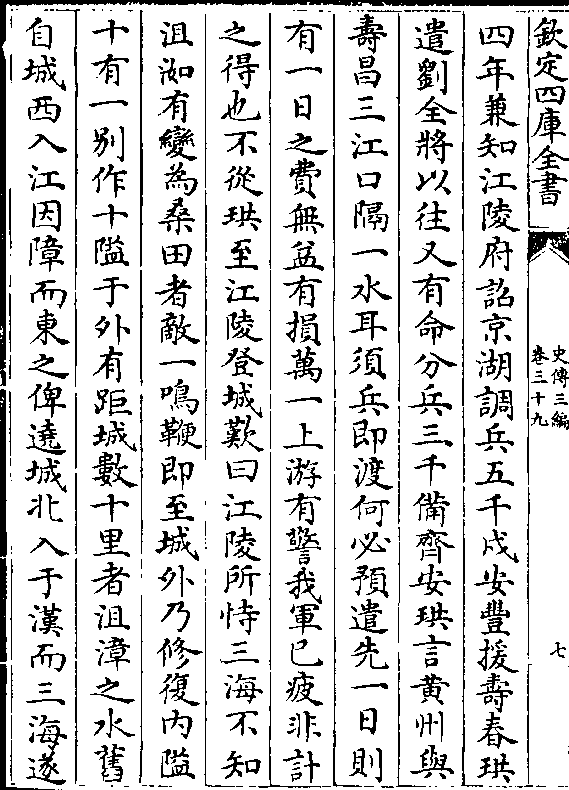 欽定四庫全書
史傳三編
卷三十九
七
四年兼知江陵府詔京湖調兵五千戍安豐援壽春珙
遣劉全將以往又有命分兵三千備齊安珙言黄州與
壽昌三江口隔一水耳須兵即渡何必預遣先一日則
有一日之費無益有損萬一上游有警我軍已疲非計
之得也不從珙至江陵登城歎曰江陵所恃三海不知
沮洳有變為桑田者敵一鳴鞭即至城外乃修復内隘
十有一别作十隘于外有距城數十里者沮漳之水舊
自城西入江因障而東之俾遶城北入于漢而三海遂